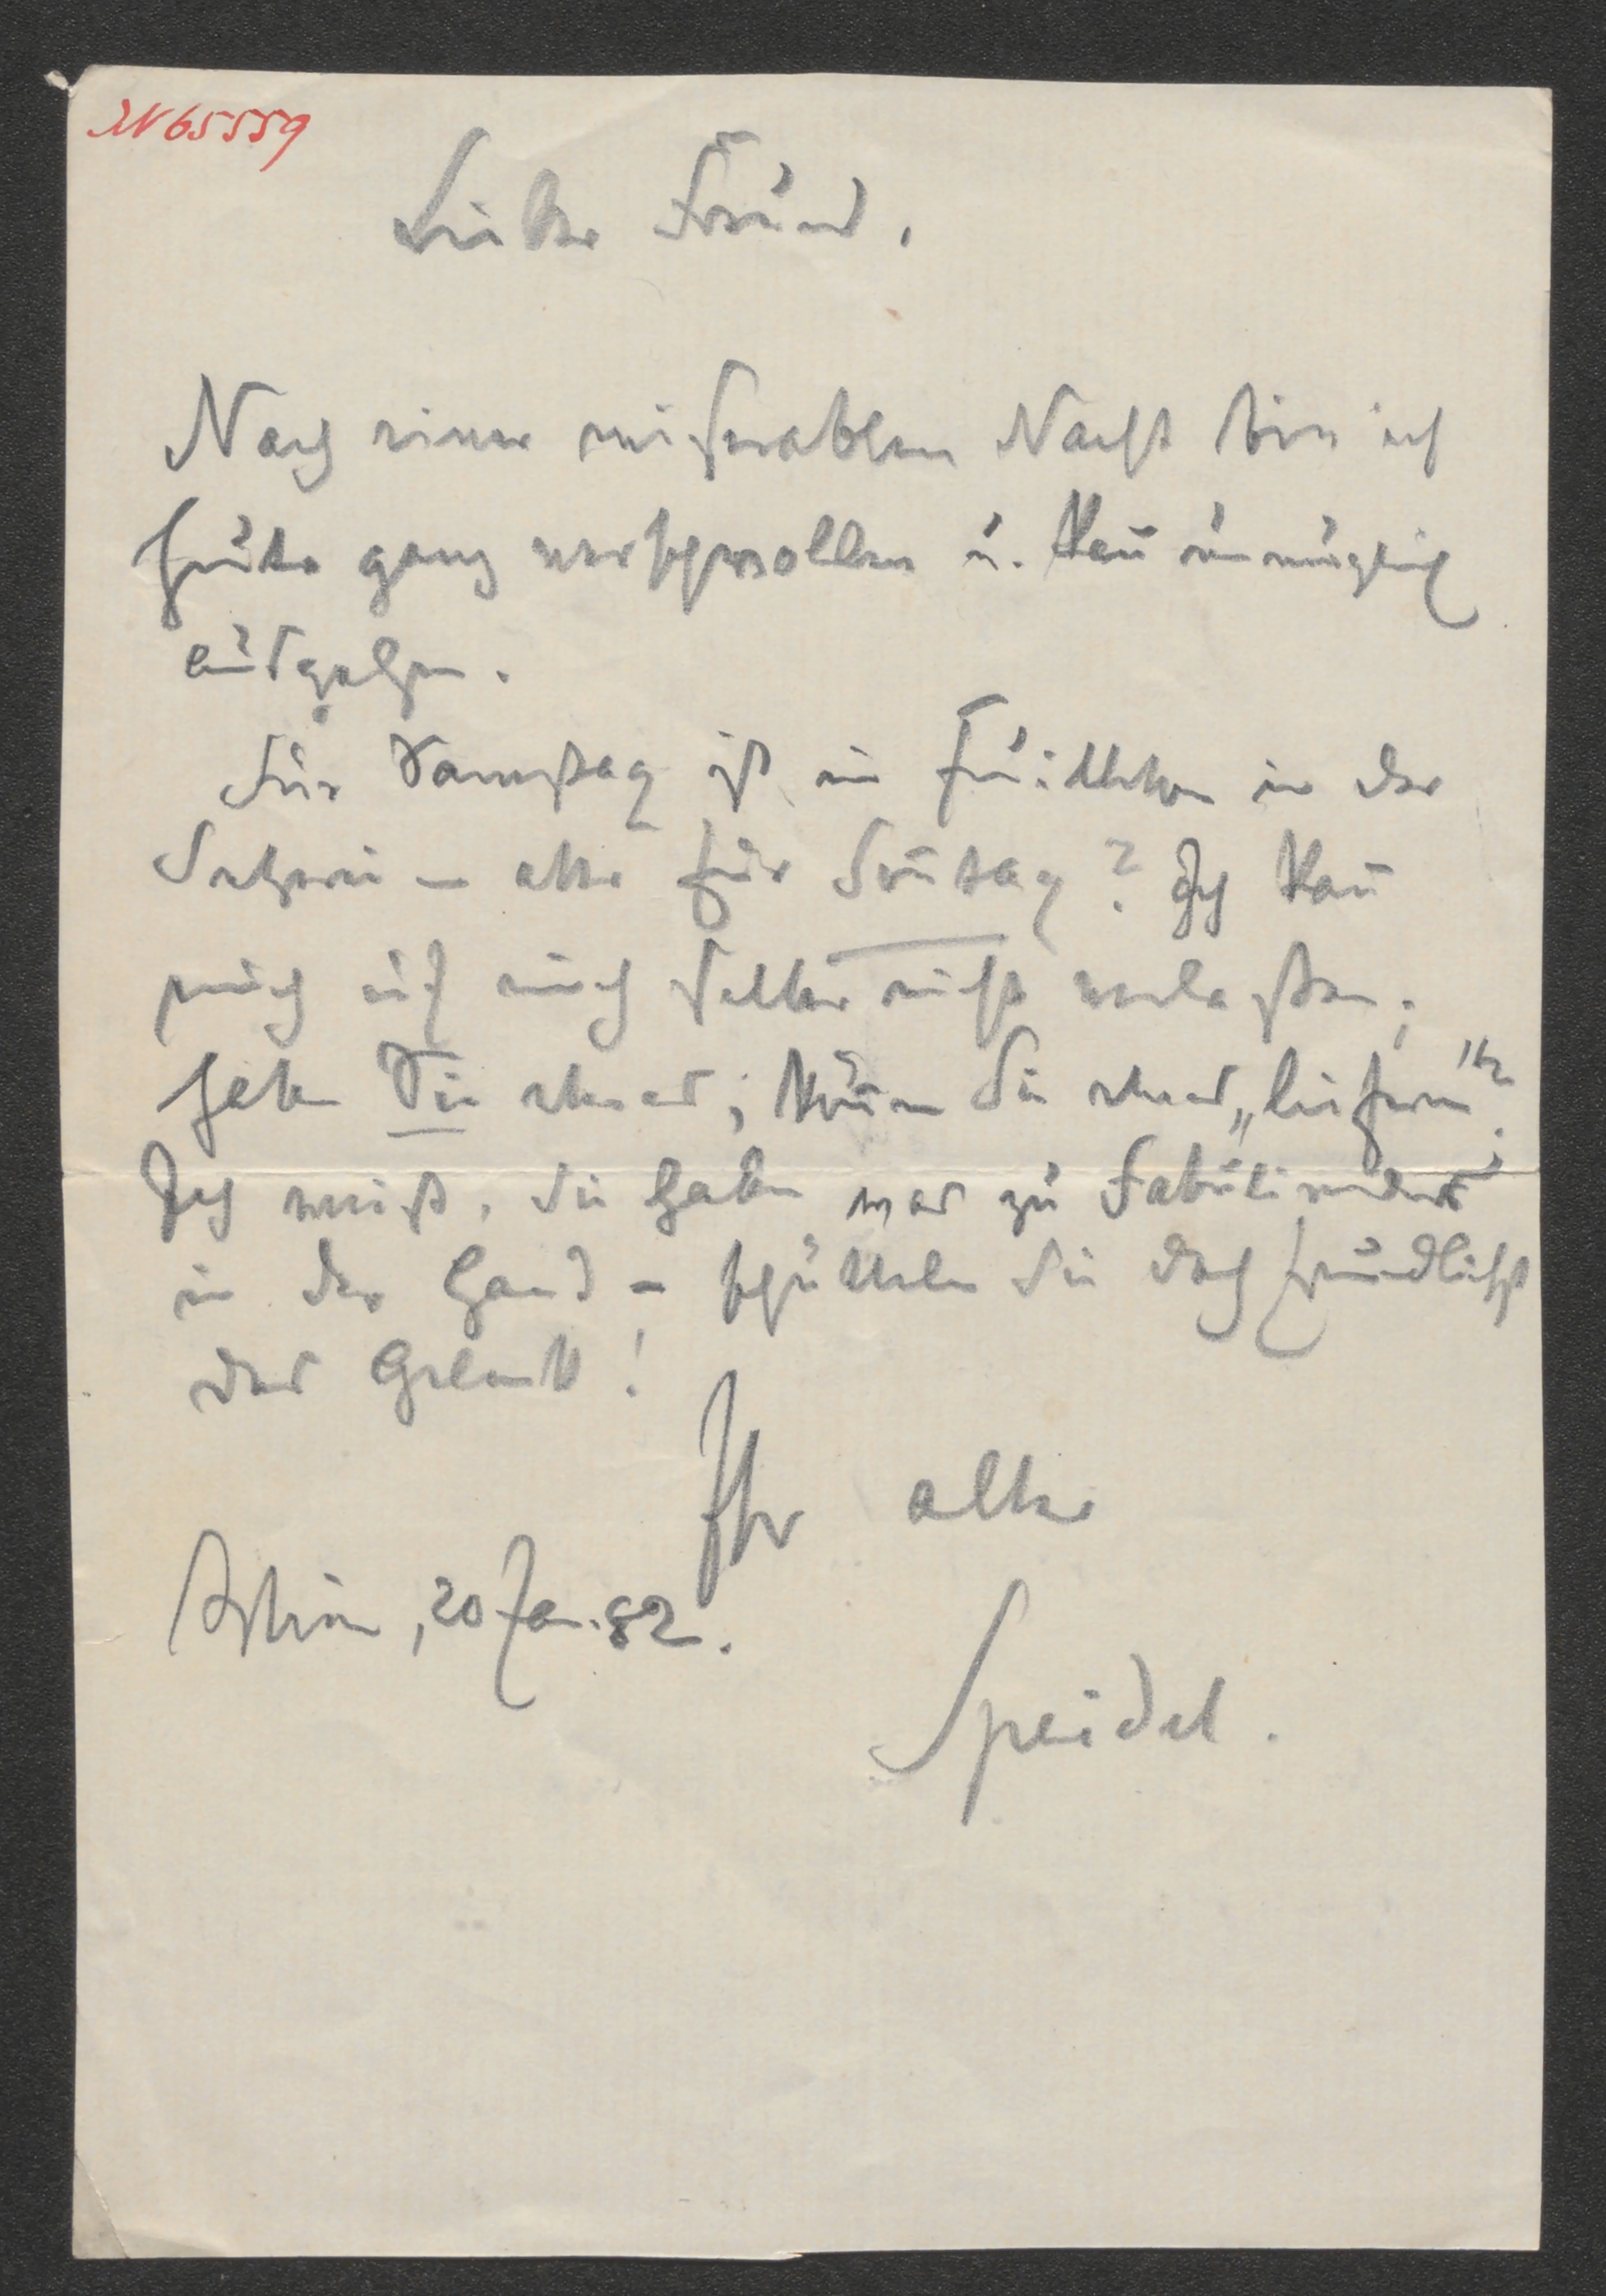 IN 65559
Lieber Freund,
Nach einer miserablen Nacht bin ich
heute ganz verschwollen u. kañ unmöglich
ausgehen.
Für Samstag ist ein Feuilleton in der
Setzerei – aber für Soñtag? Ich kañ
mich auf mich selber nicht verlassen;
haben Sie etwas; köñen Sie etwas „liefern“?
Ich weiß, Sie haben was zu
in der Hand – schütteln Sie doch freundlichst
das Gelenk!
Ihr alter
20 Jan. 82.
Speidel.